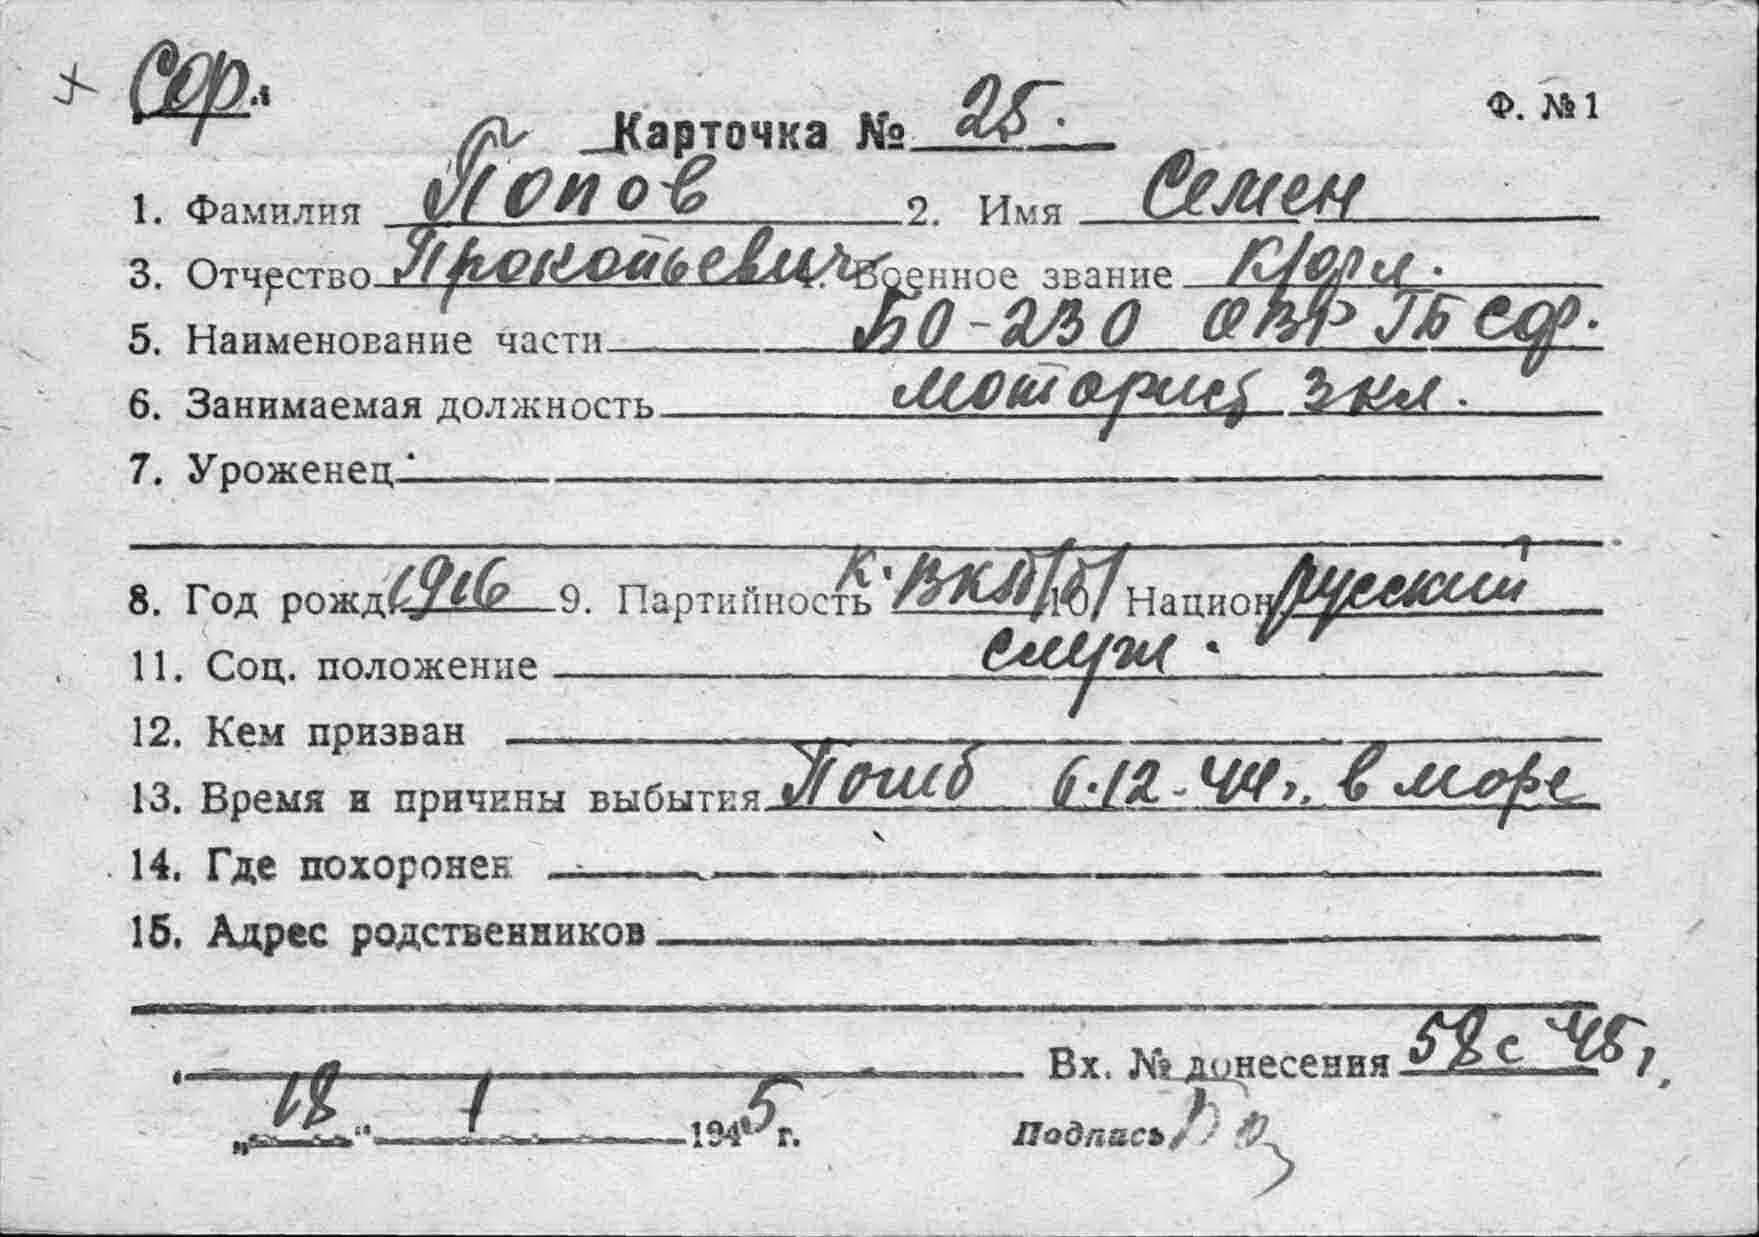 Сф.
Карточка № 25.
Ф. №1
1. Фамилия Попов 2. Имя Семен
3. Отчество Прокопьевич 4. Военное звание к/фл.
5. Наименование части БО-230 ОВР ГБ Сф.
6. Занимаемая должность моторист 3 кл.
7. Уроженец
8. Год рожд. 1916 9. Партийность К. ВКП/б/ 10. Национ. русский
11. Соц. положение служ.
12. Кем призван
13. Время и причины выбытия Погиб 6.12.44 г. в море
14. Где похоронен
15. Адрес родственников
Вх. № донесения 58с 45 г.
„18" 1 1945 г. Подпись